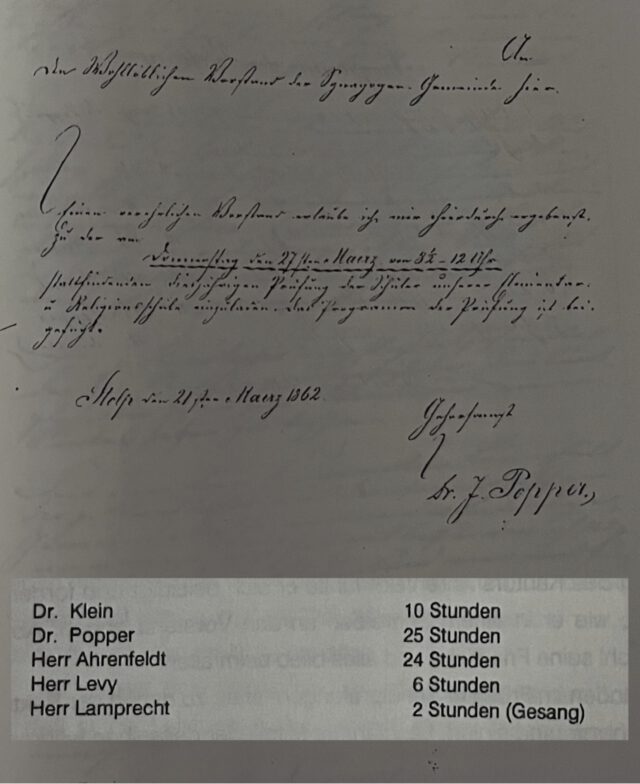 An
den Wohllöblichen Vorstand der Synagogen-Gemeinde hier.
Einen verehrlichen Vorstand erlaube ich mir hierdurch ergebenst,
zu der am
Donnerstag den 27sten Maerz von 8½ - 12 Uhr
stattfindenden diesjährigen Prüfung der Schüler unserer Elementar-
u Religionsschule einzuladen. Das Programm der Prüfung ist bei-
gefügt.
Stolp den 21sten Maerz 1862.
Gehorsamst
Dr. J. Popper.,
Dr. Klein 10 Stunden
Dr. Popper 25 Stunden
Herr Ahrenfeldt 24 Stunden
Herr Levy 6 Stunden
Herr Lamprecht 2 Stunden (Gesang)